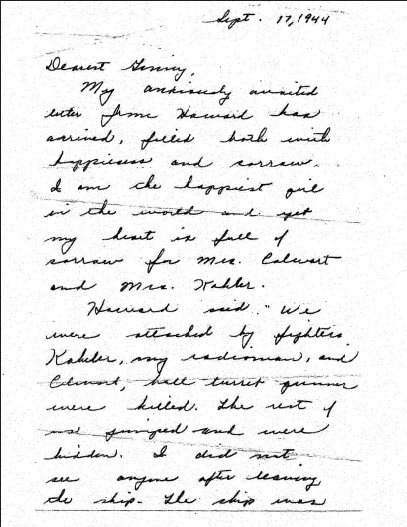 Sept. 17, 1944
Dearest Ginny,
My anxiously awaited
letter from Howard has
arrived, filled both with
happiness and sorrow.
I am the happiest girl
in the world and yet
my heart is full of
sorrow for Mrs. Calwart
and Mrs. Kahler.
Howard said, "We
were attacked by fighters.
Kahler, my radioman, and
ball turret gunner
were killed. The rest of
us jumped and were
hidden. I did not
see anyone after leaving
the ship. The ship was